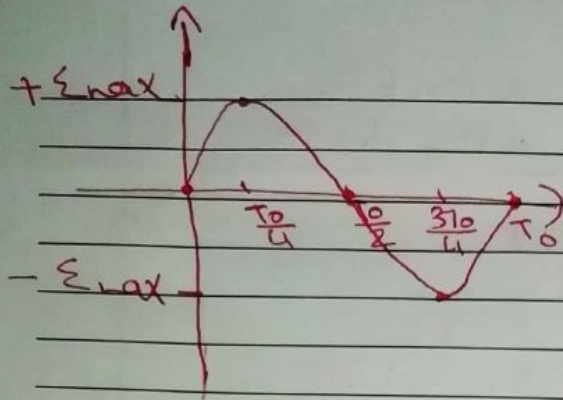 + Ɛmax
T0/4 T0/2 3T0/4 T0
- Ɛmax